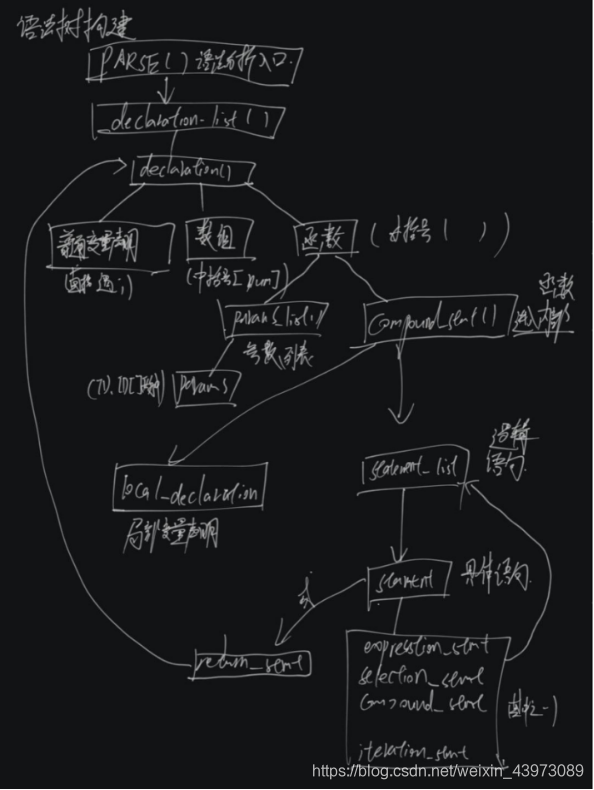 语法树构建
PARSE() 语法分析入口.
declaration_list()
declaration()
普通变量声明
数组
函数
(小括号( ))
(直接遇;)
(中括号[num])
函数
进入内部
params_list()
compound_stmt()
参数列表
params
逻辑
语句.
statement_list
local_declaration
局部变量声明
具体语句.
return_stmt
expression_stmt
selection_stmt
compound_stmt
iteration_stmt
https://blog.csdn.net/weixin_43973089